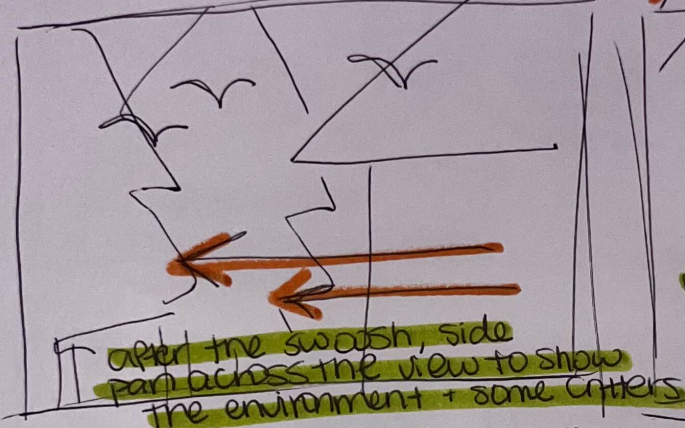 after the swoosh, side
pan across the view to show
the environment + some critters